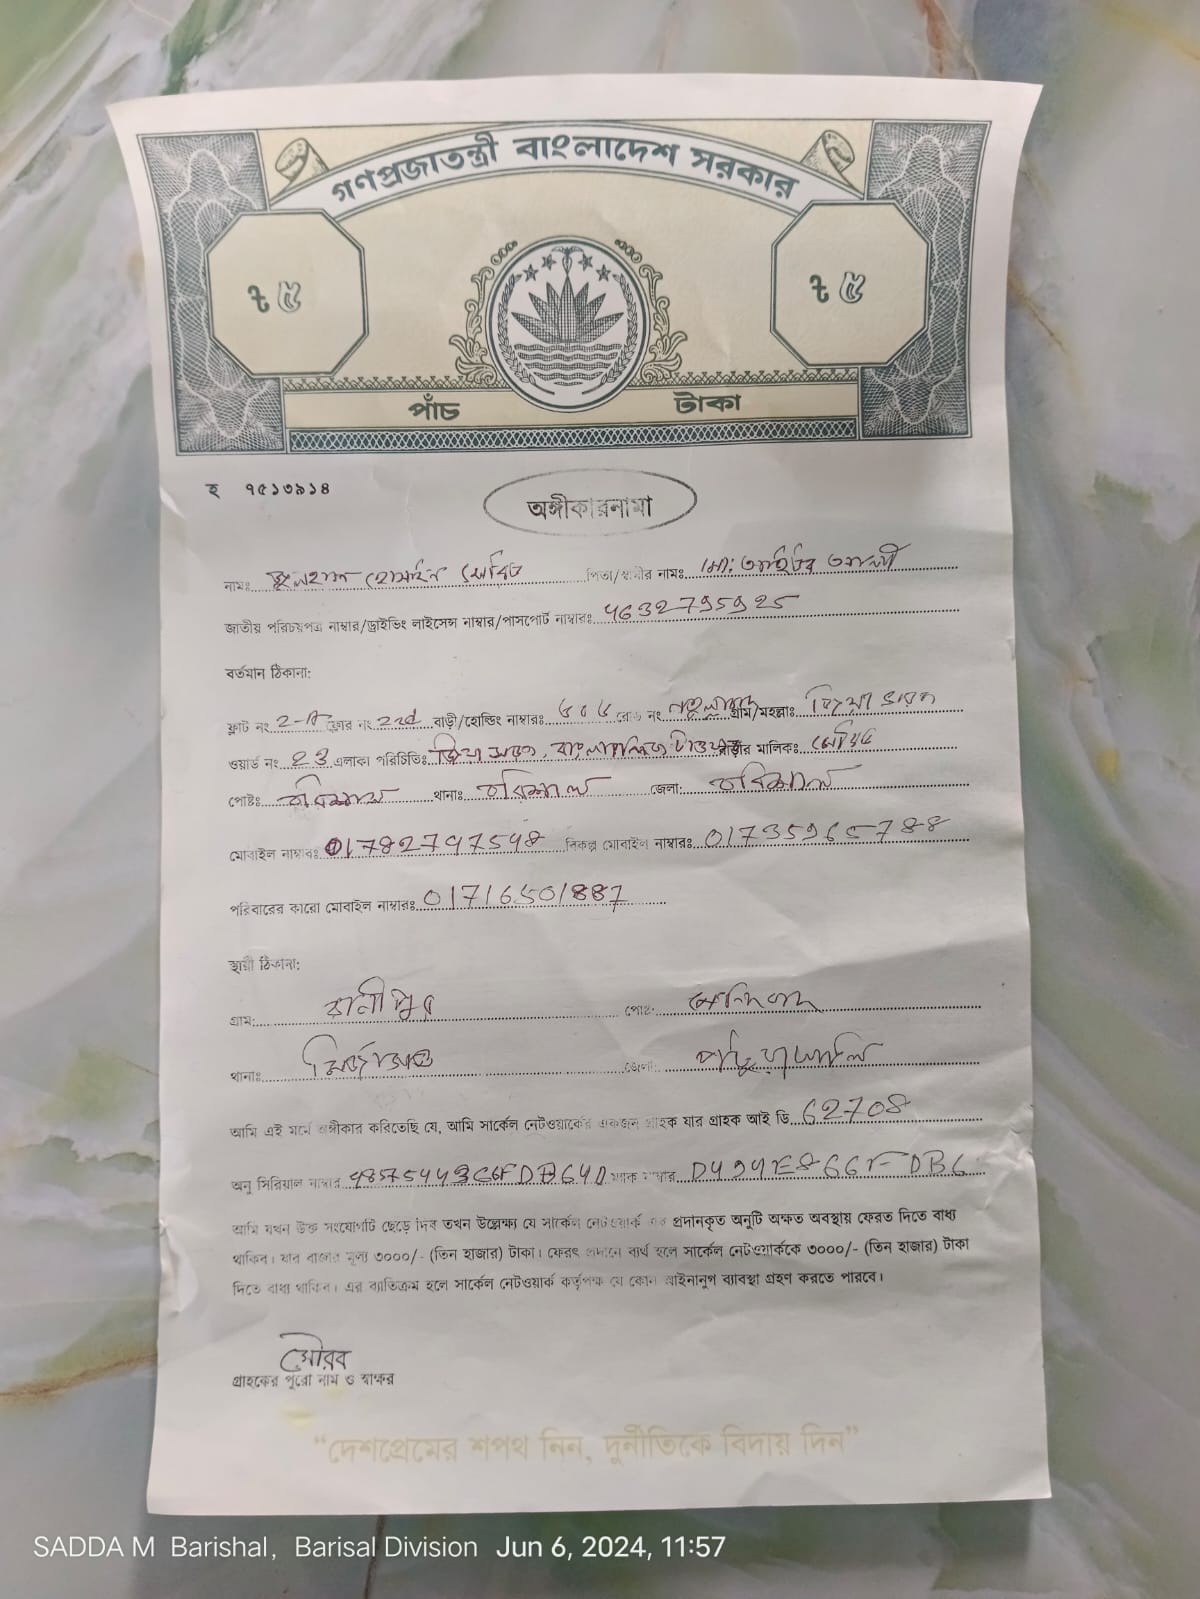 গণপ্রজাতন্ত্রী বাংলাদেশ সরকার
৳ ৫ ৳ ৫
পাঁচ টাকা
হ ৭৫১৩৯১৪
অঙ্গীকারনামা
নামঃ হোসাইন পিতা/স্বামীর নামঃ মো: আলী
জাতীয় পরিচয়পত্র নাম্বার/ড্রাইভিং লাইসেন্স নাম্বার/পাসপোর্ট নাম্বারঃ 4632795925
বর্তমান ঠিকানা:
ফ্লাট নং 2-A ফ্লোর নং 2nd বাড়ী/হোল্ডিং নাম্বারঃ রোড নং গ্রাম/মহল্লাঃ
ওয়ার্ড নং 23 এলাকা পরিচিতিঃ বাড়ীর মালিকঃ
পোষ্টঃ বরিশাল থানাঃ বরিশাল জেলা: বরিশাল
মোবাইল নাম্বারঃ 01782797548 বিকল্প মোবাইল নাম্বারঃ 01735965788
পরিবারের কারো মোবাইল নাম্বারঃ 01716501887
স্থায়ী ঠিকানা:
গ্রাম: রানীপুর পোষ্ট:
থানাঃ মির্জাগঞ্জ জেলা: পটুয়াখালি
আমি এই মর্মে অঙ্গীকার করিতেছি যে, আমি সার্কেল নেটওয়ার্কের একজন গ্রাহক যার গ্রাহক আই ডি 62708
অনু সিরিয়াল নাম্বার ম্যাক নাম্বার
আমি যখন উক্ত সংযোগটি ছেড়ে দিব তখন উল্লেক্ষ্য যে সার্কেল নেটওয়ার্ক এর প্রদানকৃত অনুটি অক্ষত অবস্থায় ফেরত দিতে বাধ্য
থাকিব। যার বাজার মূল্য ৩০০০/- (তিন হাজার) টাকা। ফেরৎ প্রদানে ব্যর্থ হলে সার্কেল নেটওয়ার্ককে ৩০০০/- (তিন হাজার) টাকা
দিতে বাধ্য থাকিব। এর ব্যাতিক্রম হলে সার্কেল নেটওয়ার্ক কর্তৃপক্ষ যে কোন আইনানুগ ব্যাবস্থা গ্রহণ করতে পারবে।
সৌরব
গ্রাহকের পুরো নাম ও স্বাক্ষর
“দেশপ্রেমের শপথ নিন, দুর্নীতিকে বিদায় দিন”
SADDA M Barishal, Barisal Division Jun 6, 2024, 11:57